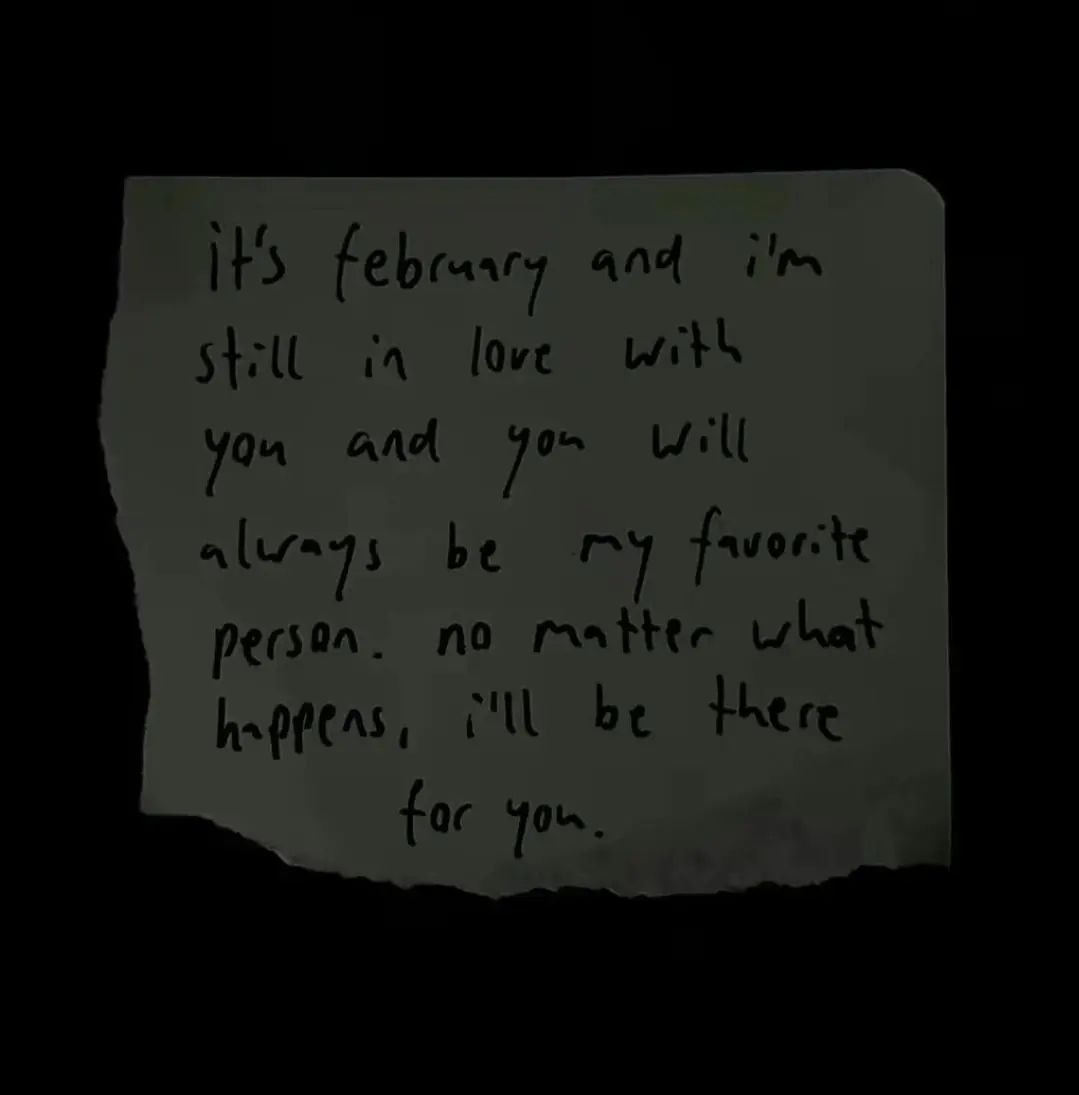 it's february and i'm
still in love with
you and you will
always be my favorite
person. no matter what
happens, i'll be there
for you.